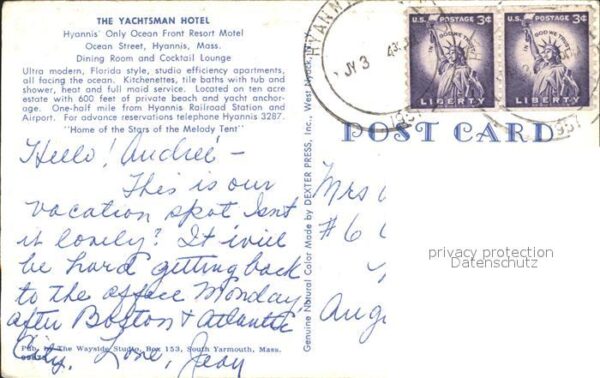 THE YACHTSMAN HOTEL
Hyannis' Only Ocean Front Resort Motel
Ocean Street, Hyannis, Mass.
Dining Room and Cocktail Lounge
Ultra modern, Florida style, studio efficiency apartments,
all facing the ocean. Kitchenettes, tile baths with tub and
shower, heat and full maid service. Located on ten acre
estate with 600 feet of private beach and yacht anchor-
age. One-half mile from Hyannis Railroad Station and
Airport. For advance reservations telephone Hyannis 3287.
"Home of the Stars of the Melody Tent"
Hello! Andreé -
This is our
vacation spot Isnt
it lovely? It will
be hard getting back
to the office Monday
after Boston & Atlantic
City. Love, Jean
Pub. by The Wayside Studio, Box 153, South Yarmouth, Mass.
Genuine Natural Color Made by DEXTER PRESS, Inc., West Nyack, N.Y.
HYANNIS
JY 3
1957
U.S. POSTAGE 3¢
IN GOD WE TRUST
LIBERTY
U.S. POSTAGE 3¢
IN GOD WE TRUST
LIBERTY
POST CARD
Mrs
#6
Aug
privacy protection
Datenschutz